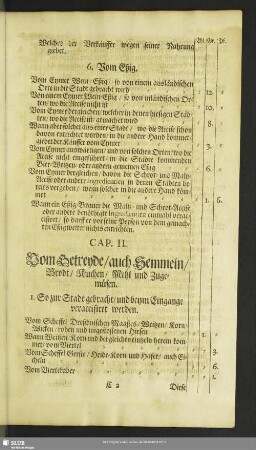 Welches der Verkäuffer wegen seiner Nahrung
giebet.
6. Vom Eßig.
Vom Eymer Wein-Eßig / so von einem ausländischen
Orte in die Stadt gebracht wird
Von einem Eymer Wein-Eßig / so von inländischen Or-
ten / wo die Accise nicht ist
Vom Eymer dergleichen / welcher in denen hiesigen Städ-
ten / wo die Accise ist / gemachet worden
Wann aber solcher aus einer Stadt / wo die Accise schon
davon entrichtet worden / in die andere Hand kommet /
giebet der Käuffer vom Eymer
Vom Eymer auswärtigen / und von solchen Orten / wo die
Accise nicht eingeführet / in die Städte kommenden
Bier-Weitzen- oder andern gemeinen Eßig
Vom Eymer dergleichen / davon die Schrot- und Maltz-
Accise oder andere ingredientien in denen Städten be-
reits vergeben / wann solcher in die andere Hand köm-
met
Wann ein Eßig-Brauer die Maltz- und Schrot-Accise
oder andere benöthigte Ingredientien einmahl verac-
cisiret / so darff er vor seine Person von dem gemach-
ten Eßig weiter nichts entrichten.
CAP. II.
Vom Getreyde / auch Semmeln /
Brodt / Kuchen / Mehl und Zuge-
müsen.
1. So zur Stadt gebracht / und beym Eingange
veraccisiret werden.
Vom Scheffel Dreßdnischen Maaßes / Weitzen / Korn
Wicken / rohen und ungestossenen Hirsen
Wann Weitzen / Korn und dergleichen eintzeln herein kom-
met / vom Viertel
Vom Scheffel Gerste / Heyde-Korn und Hafer / auch Ei-
cheln
Vom Viertel aber
K 2
Diese